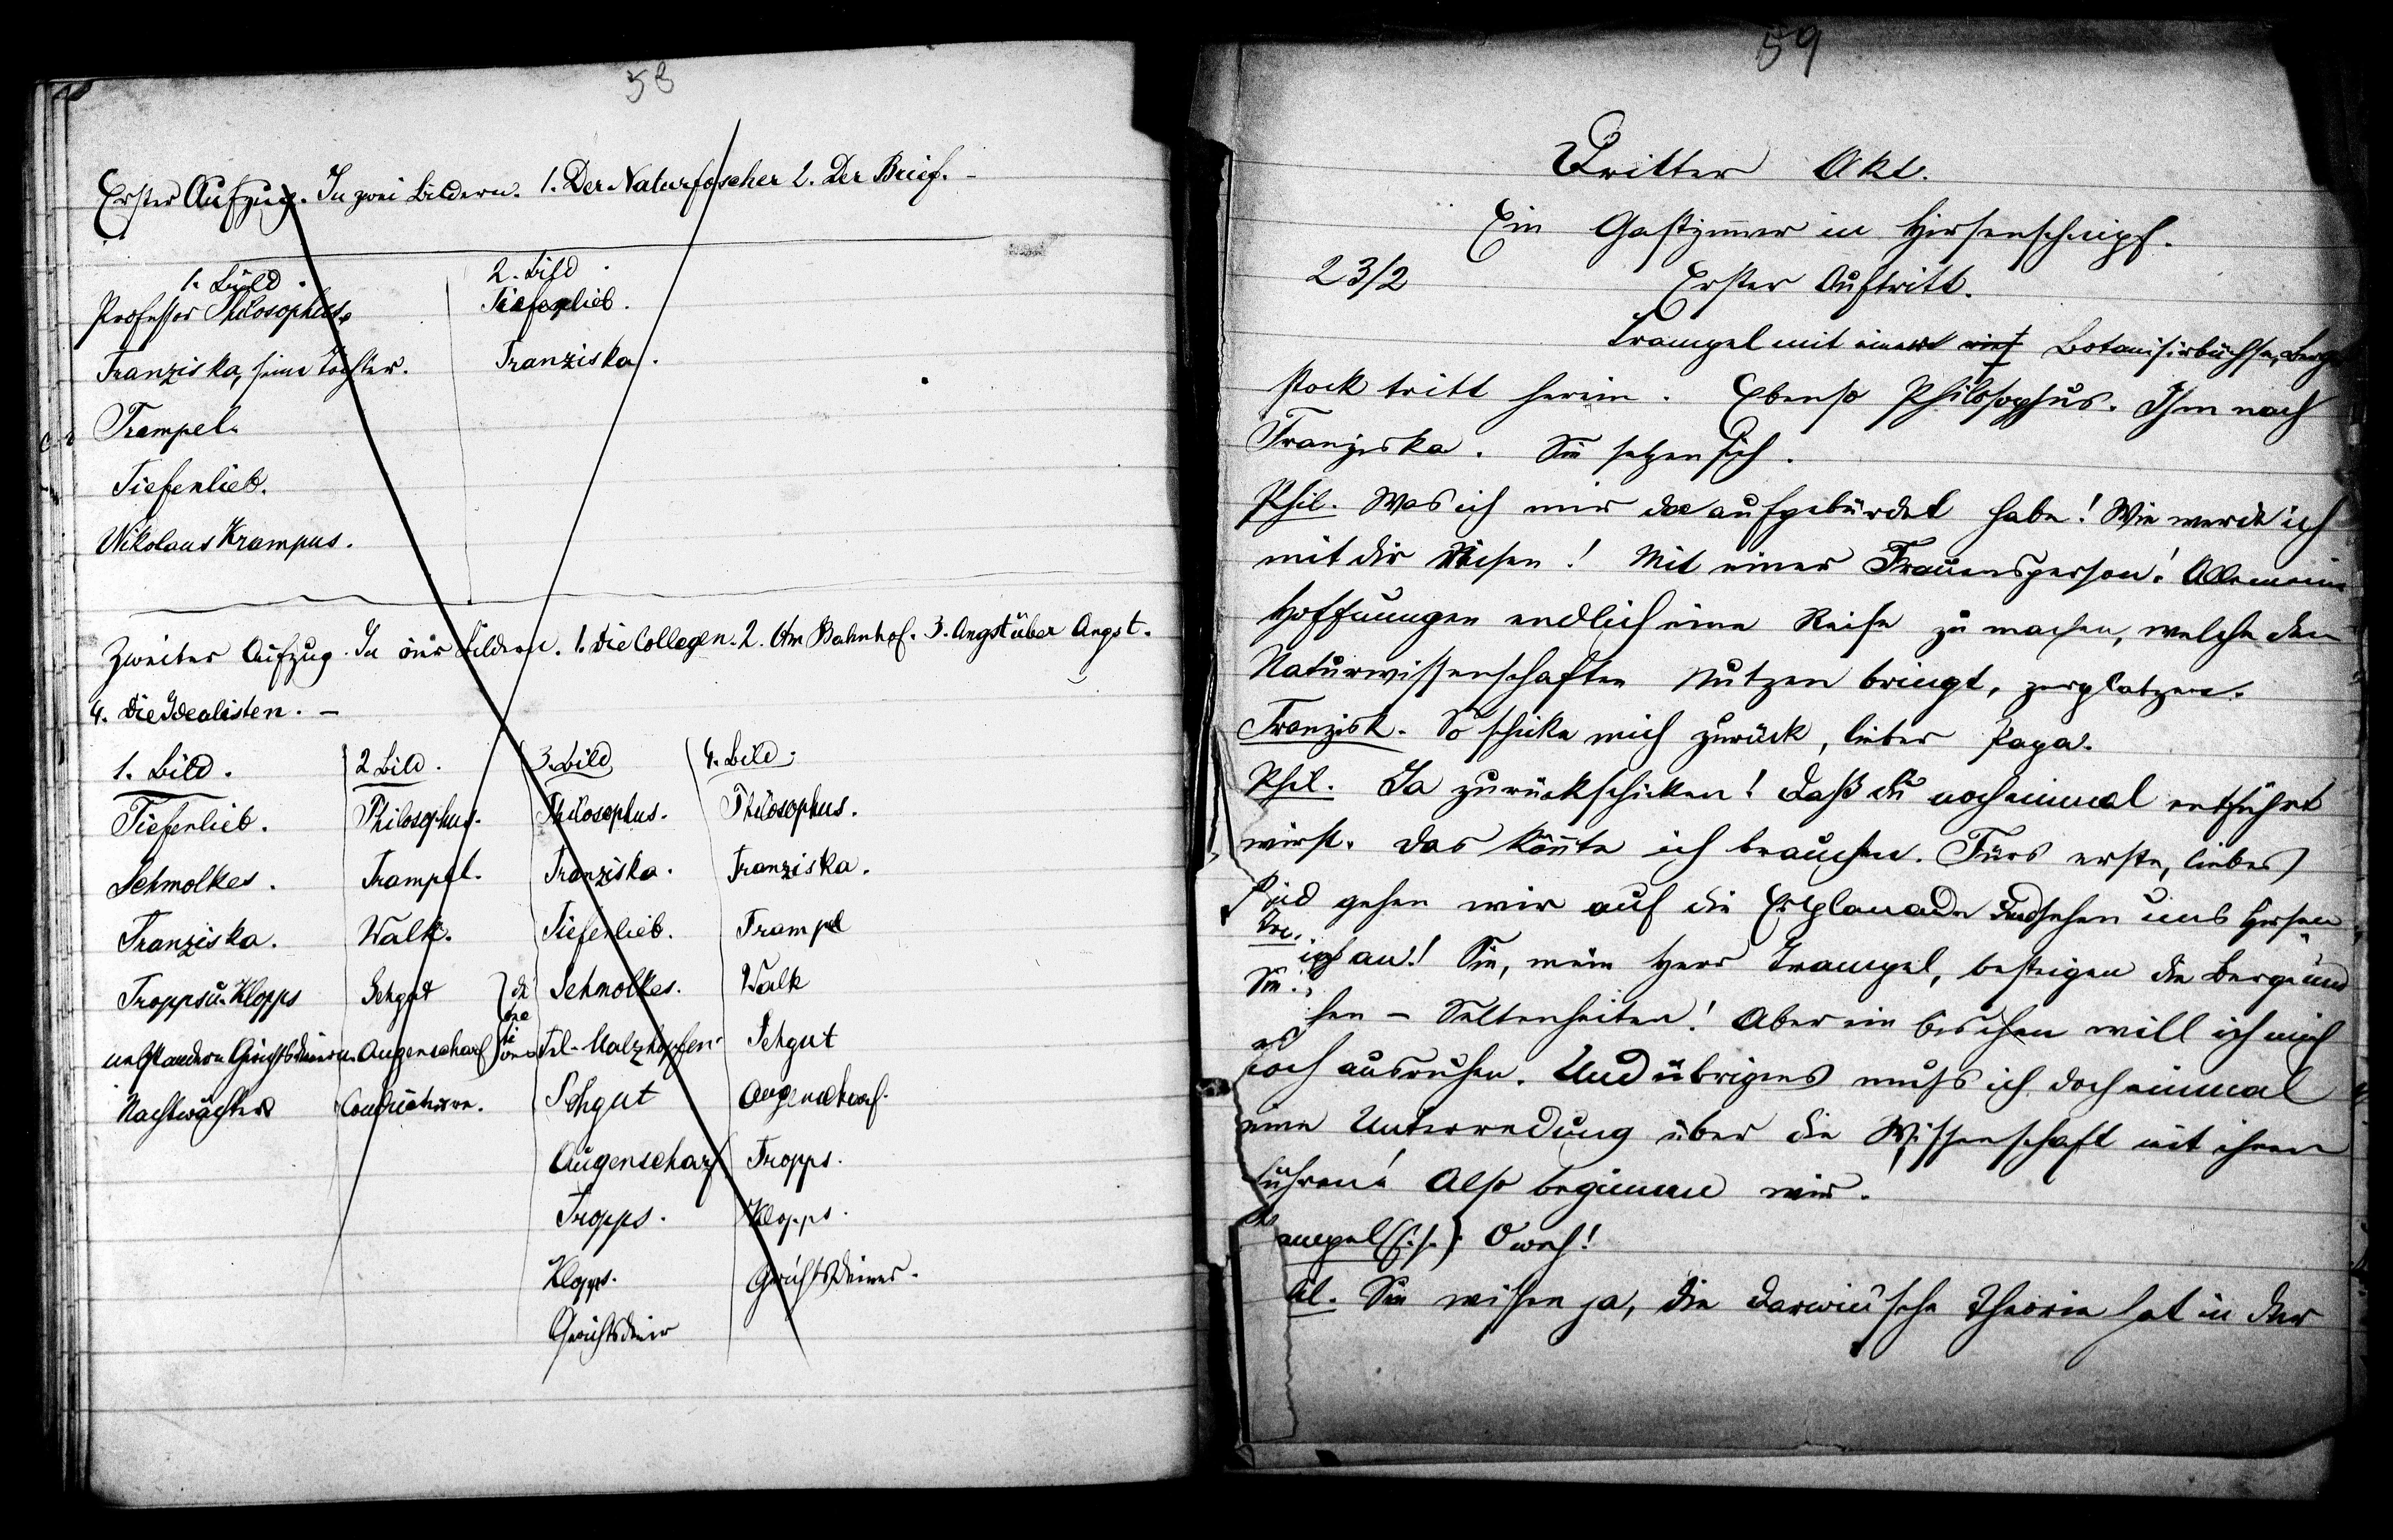 58
Erster Aufzug. In zwei Bildern. 1. Der Naturfoscher 2. Der Brief. –
1. Bild.
2. Bild.
Professor Philosophus.
Tiefenlieb.
Franziska, seine Tochter.
Franziska.
Trampel.
Tiefenlieb.
Nikolaus Krampus.
Zweiter Aufzug. In vier Bildern. 1. Die Collegen. 2. Am Bahnhof. 3. Angst über Angst.
4. Die Idealisten. –
1. Bild. 2 Bild. 3. Bild 4. Bild.
Tiefenlieb. Philosophus. Philosophus. Philosophus.
Schmolkes. Trampel. Franziska. Franziska.
Franziska. Walk. Tiefenlieb. Trampel
Tropps u. Klopps Sehgut Schmolkes. Walk
nebst andern Gerichtsdienern. Augenscharf Frl. Malzhopfen Sehgut
Nachtwächter Conducteure. Sehgut Augenscharf.
Augenscharf Tropps.
Tropps. Klopps.
Klopps. Gerichtsdiener.
Gerichtsdiener
59
Dritter Akt.
Ein Gastzimmer in Hirsenschnipf.
23/2 Erster Auftritt.
Trampel mit einer Botanisirbüchse, Berg
stock tritt herein. Ebenso Philosophus. Ihm nach
Franziska. Sie setzen sich.
Phil. Was ich mir da aufgebürdet habe! Wie werde ich
mit dir reisen! Mit einer Frauensperson! Alle meine
Hoffnungen endlich eine Reise zu machen, welche den
Naturwissenschaften Nutzen bringt, zerplatzen.
Franzisk. So schicke mich zurück, lieber Papa.
Phil. Ja zurückschicken! Daß du noch einmal entführt
wirst. Das könnte ich brauchen. Fürs erste, liebes
Kind gehen wir auf die Esplanade und sehen uns Hirsen
an! Sie, mein Herr Trampel, besteigen die Berge und
– Seltenheiten! Aber ein bischen will ich mich
noch ausruhen. Und übrigens muß ich doch einmal
eine Unterredung über die Wissenschaft mit ihnen
führen! Also beginnen wir.
ampel (f. s.): O weh!
hil. Sie wissen ja, die Darwin'sche Theorie hat in der